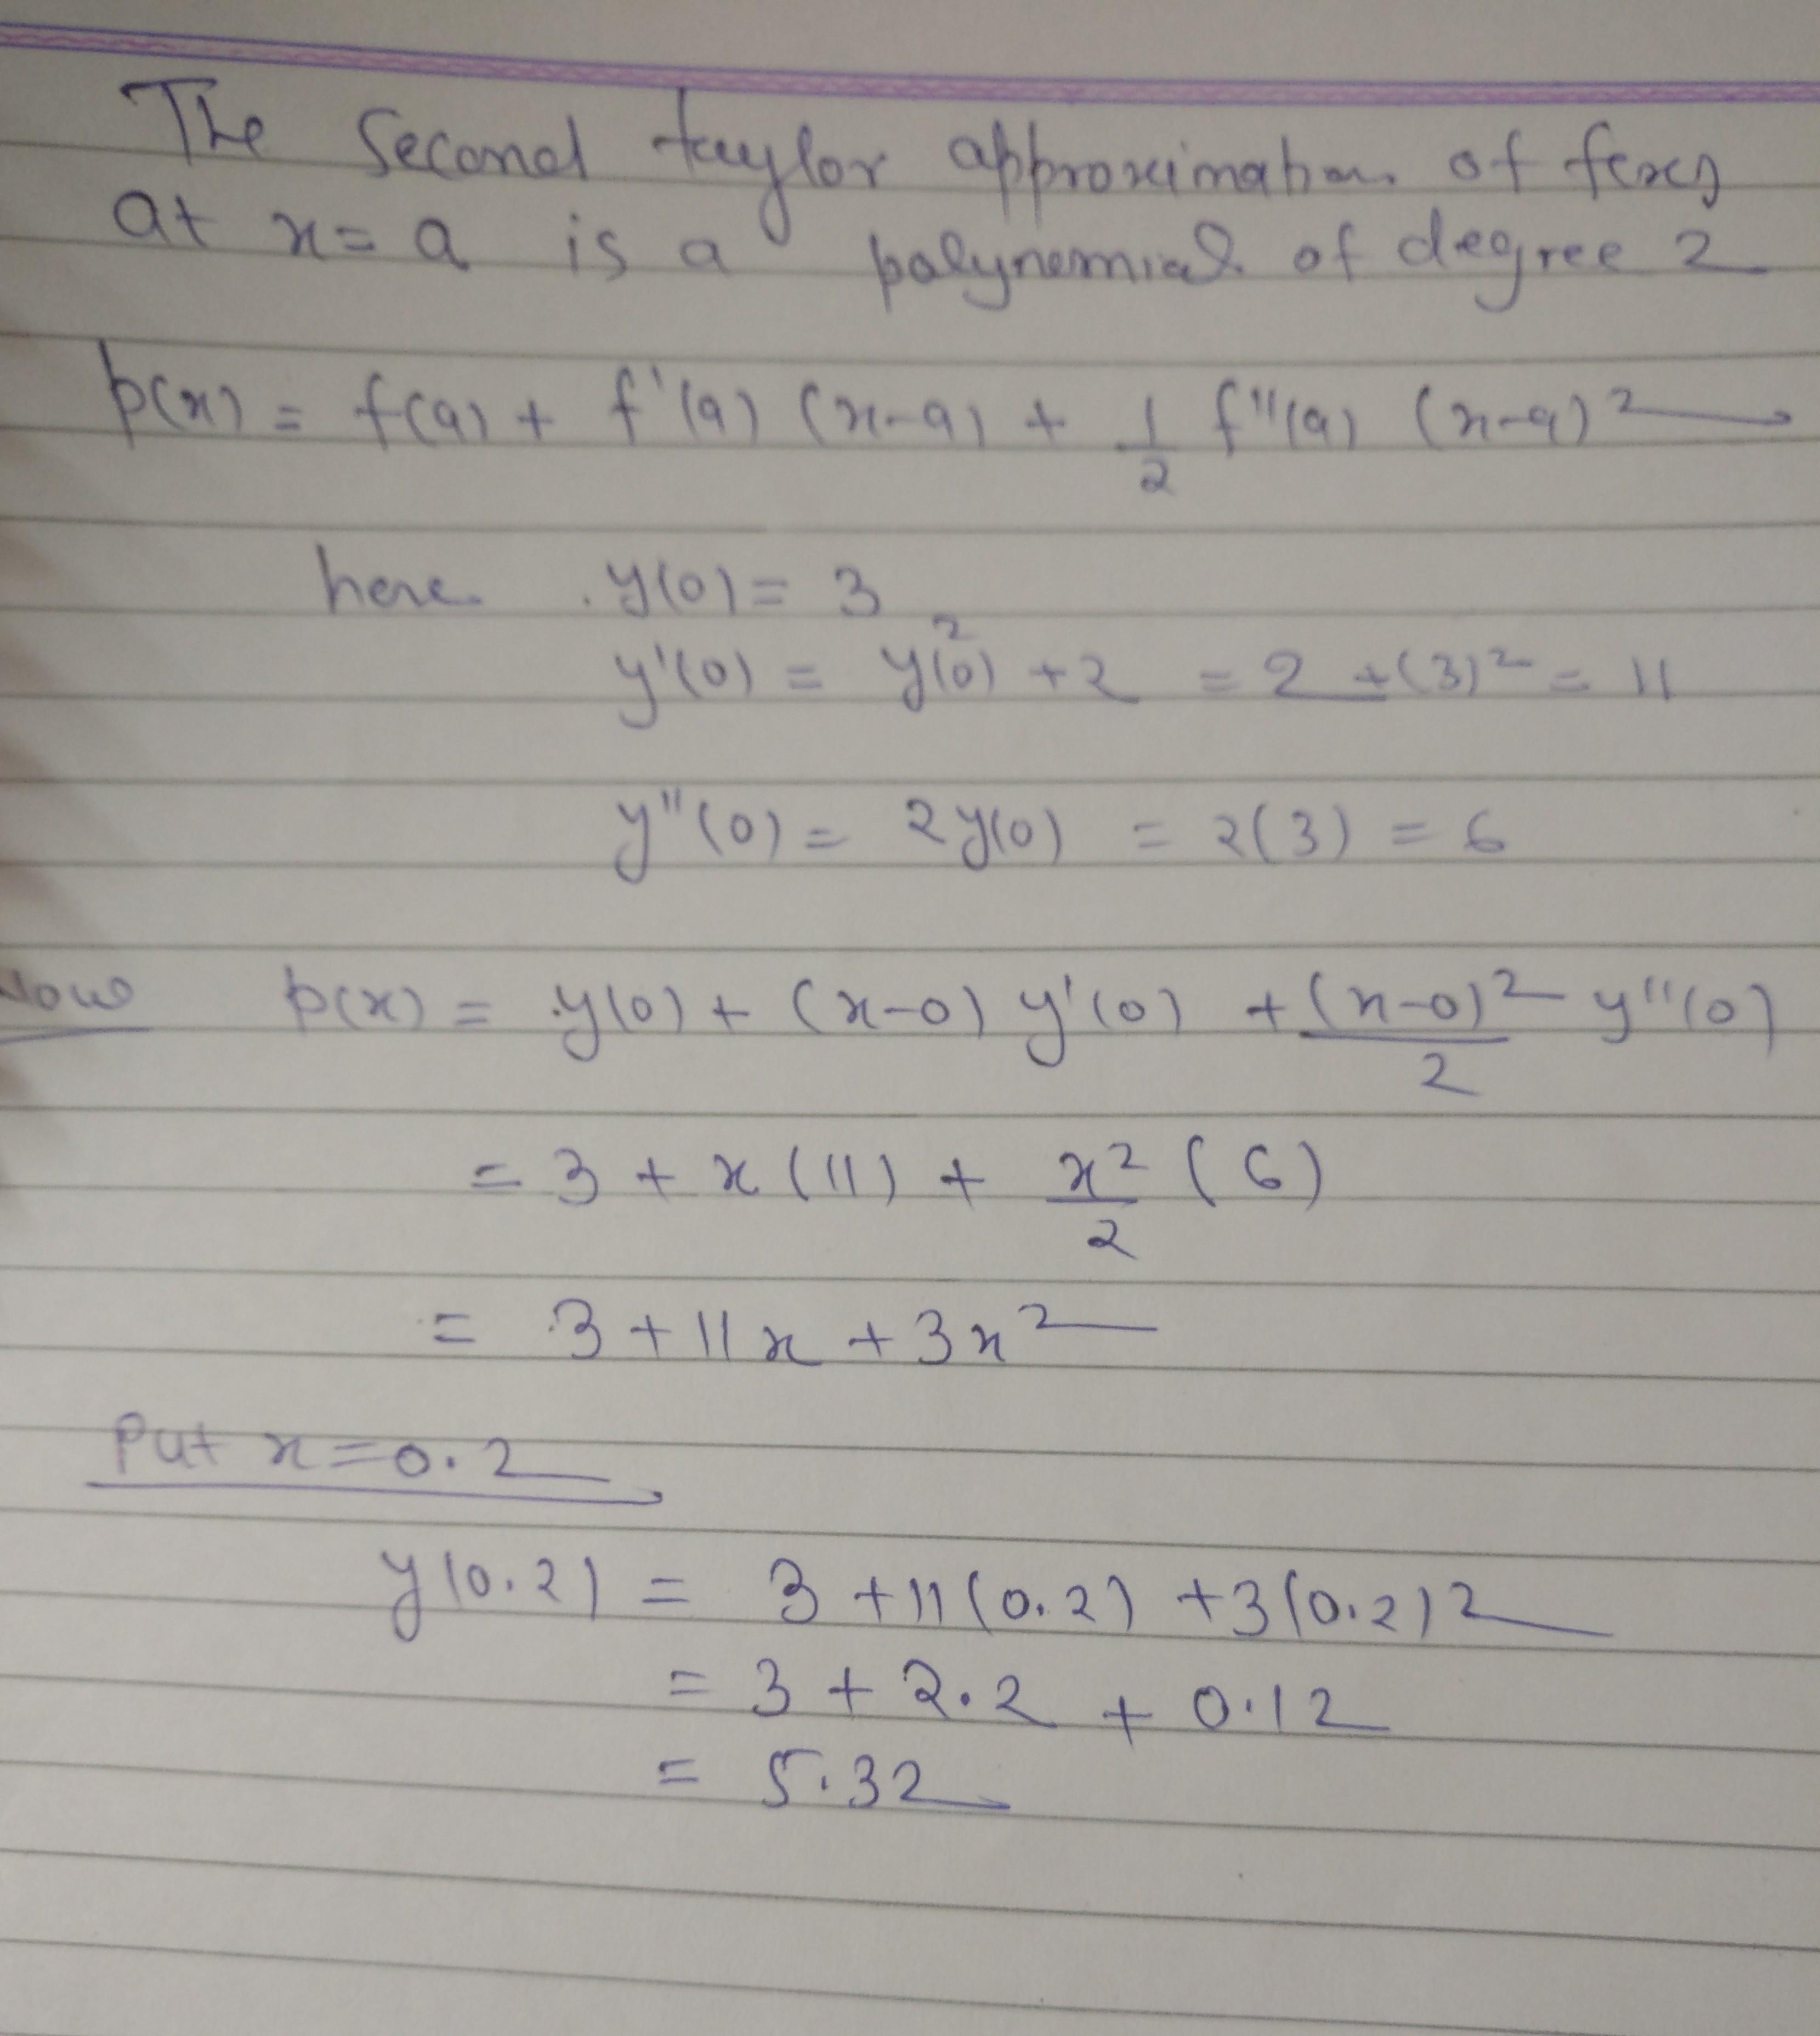 The Second taylor approximation of f(x)
at x = a is a polynomial of degree 2
p(x) = f(a) + f'(a) (x-a) + 1/2 f''(a) (x-a)²
here y(0) = 3
y'(0) = y(0)² + 2 = 2 + (3)² = 11
y''(0) = 2y(0) = 2(3) = 6
Now p(x) = y(0) + (x-0) y'(0) + (x-0)²/2 y''(0)
= 3 + x(11) + x²/2 (6)
= 3 + 11x + 3x²
Put x = 0.2
y(0.2) = 3 + 11(0.2) + 3(0.2)²
= 3 + 2.2 + 0.12
= 5.32